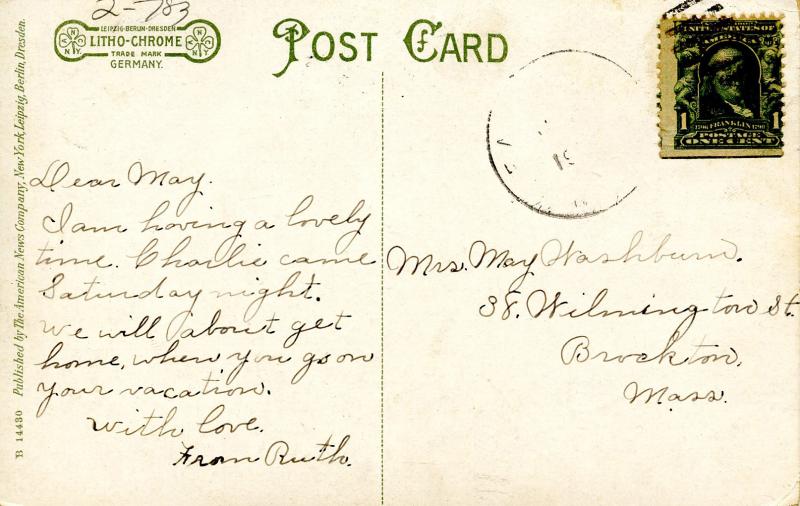 2-783
LEIPZIG-BERLIN-DRESDEN
LITHO-CHROME
TRADE MARK
GERMANY.
POST CARD
UNITED STATES OF
AMERICA
1 1706 FRANKLIN 1790 1
POSTAGE
ONE CENT
Dear May.
I am having a lovely
time. Charlie came
Saturday night.
We will about get
home, when you go on
your vacation.
With love.
From Ruth.
Mrs. May Washburn.
38. Wilmington St.
Brockton,
Mass.
B 14430 Published by The American News Company, New York, Leipzig, Berlin, Dresden.